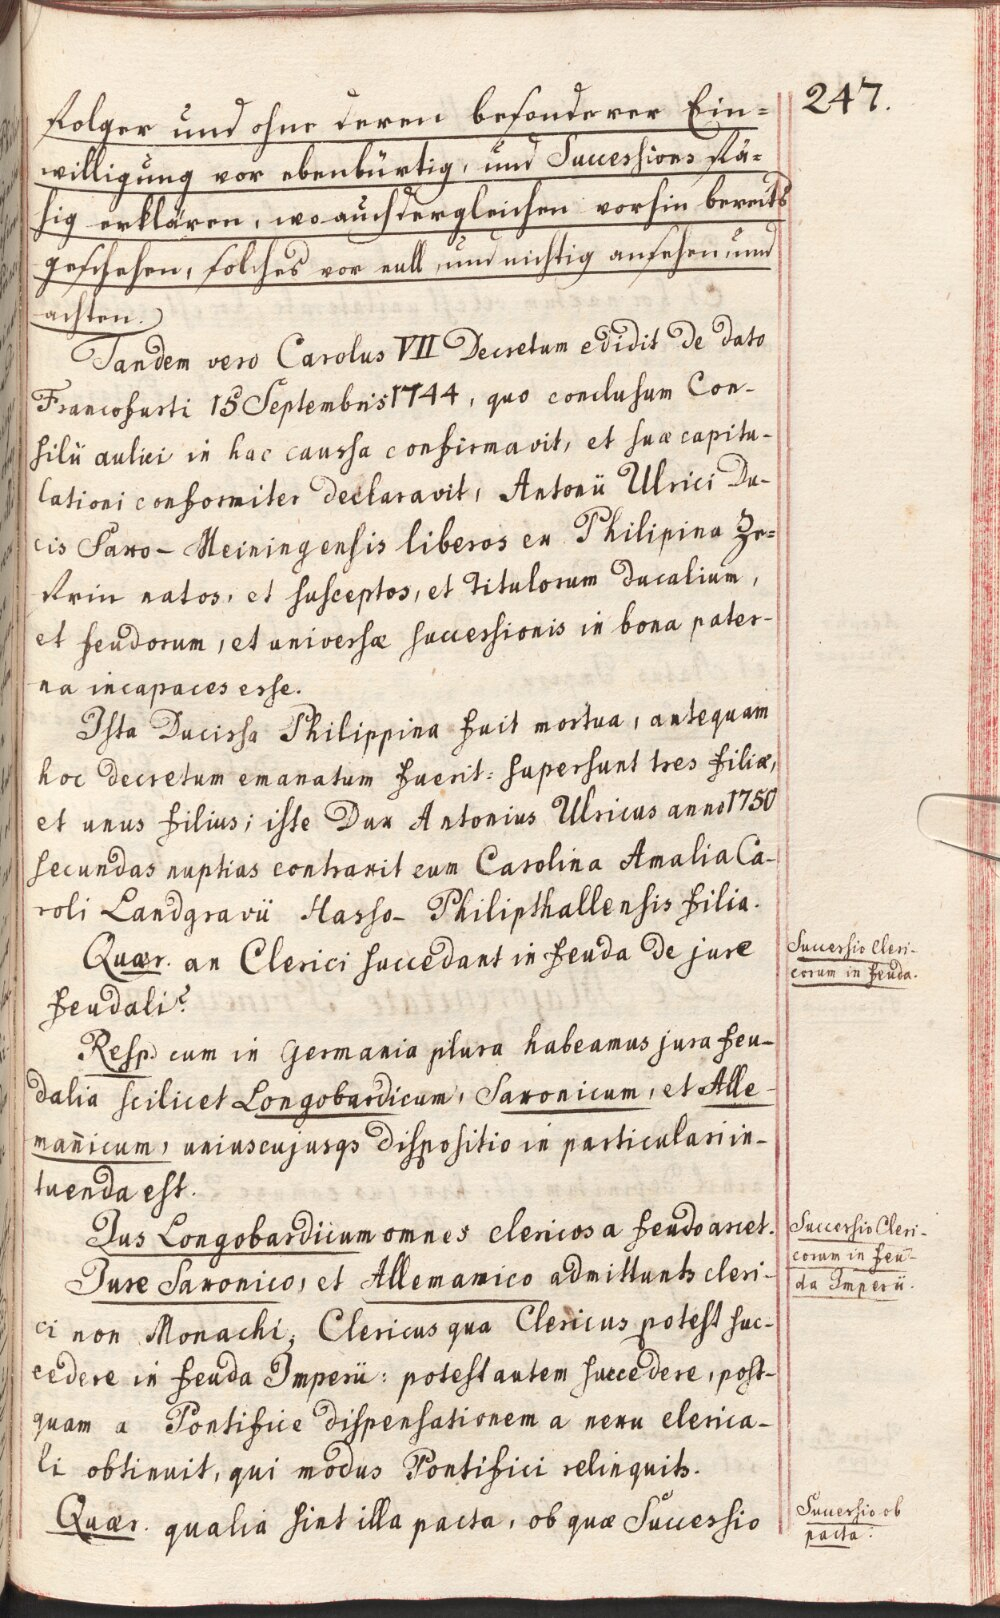 247.
folger und ohne deren besonderer Ein=
willigung vor ebenbürtig, und Successions fä=
hig erklären, wo auch dergleichen vorhin bereits
geschehen, solches vor null, und nichtig ansehen, und
achten.
Tandem vero Carolus VII Decretum edidit de dato
Francofurti 15 Septembris 1744, quo conclusum Con-
silii aulici in hac caussa confirmavit, et suæ capitu-
lationi conformiter declaravit, Antonii Ulrici Du-
cis Saxo-Meiningensis liberos ex Philipina Ze=
frin natos, et susceptos, et titulorum ducalium,
et feudorum, et universæ successionis in bona pater-
na incapaces esse.
Ista Ducissa Philippina fuit mortua, antequam
hoc decretum emanatum fuerit: supersunt tres filiæ,
et unus filius; iste Dux Antonius Ulricus anno 1750
secundas nuptias contraxit cum Carolina Amalia Ca-
roli Landgravii Hasso-Philipthallensis filia.
Quær. an Clerici succedant in feuda de jure
feudali?
Successio Cleri-
corum in feuda.
Resp. cum in Germania plura habeamus jura feu-
dalia scilicet Longobardicum, Saxonicum, et Alle-
man̄icum, uniuscujusqs dispositio in particulari in-
tuenda est.
Jus Longobardicum omnes clericos a feudo arcet.
Jure Saxonico, et Allemannico admittunts cleri-
ci non Monachi, Clericus qua Clericus potest suc-
cedere in feuda Imperii: potest autem succedere, post-
quam a Pontifice dispensationem a nexu clerica-
li obtinuit, qui modus Pontifici relinquits.
Successio Cleri-
corum in feu-
da Imperii.
Quær. qualia sint illa pacta, ob quæ Successio
Successio ob
pacta.